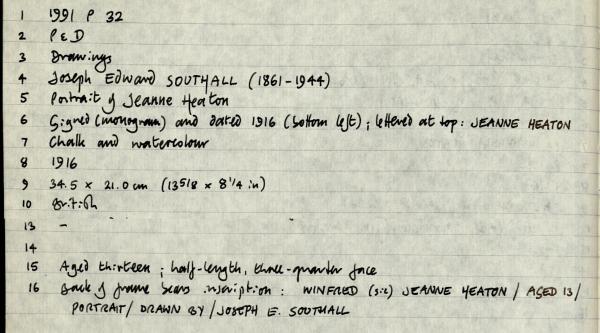 1 1991 P 32
2 P & D
3 Drawings
4 Joseph Edward SOUTHALL (1861-1944)
5 Portrait of Jeanne Heaton
6 Signed (monogram) and dated 1916 (bottom left); lettered at top: JEANNE HEATON
7 Chalk and watercolour
8 1916
9 34.5 x 21.0 cm (13 5/8 x 8 1/4 in)
10 British
13 -
14
15 Aged thirteen; half-length, three-quarter face
16 Back of frame bears inscription: WINFRED (sic) JEANNE HEATON / AGED 13/
PORTRAIT/ DRAWN BY / JOSEPH E. SOUTHALL